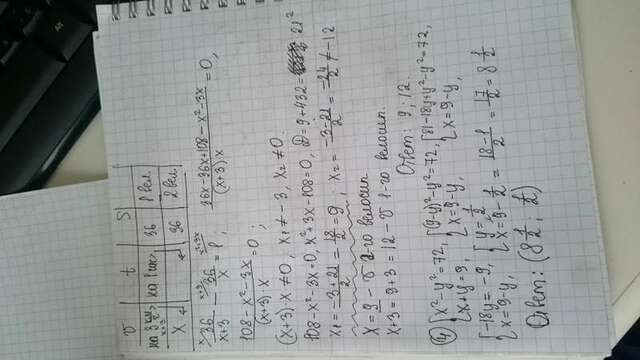 V t S
на 3 км/ч на 1 час 36 1 вел.
x+3
x 36 2 вел.
36/(x+3) - 36/x = 1 ; (36x-36x+108-x²-3x)/((x+3)·x) = 0,
(108-x²-3x)/((x+3)·x) = 0 ;
(x+3)·x ≠ 0, x₁ ≠ -3, x₂ ≠ 0.
108-x²-3x=0, x²+3x-108=0, D=9+432= 21²
x₁ = (-3+21)/2 = 18/2 = 9 ; x₂ = (-3-21)/2 = -24/2 ≠ -12
x = 9 - V 2-го велосип.
x+3 = 9+3 = 12 - V 1-го велосип.
Ответ: 9; 12.
④ {x²-y²=72, {(9-y)²-y²=72, {81-18y+y²-y²=72,
{x+y=9, {x=9-y, {x=9-y,
{-18y=-9, {y=1/2
{x=9-y, {x=9-1/2 = (18-1)/2 = 17/2 = 8 1/2
Ответ: (8 1/2 ; 1/2)